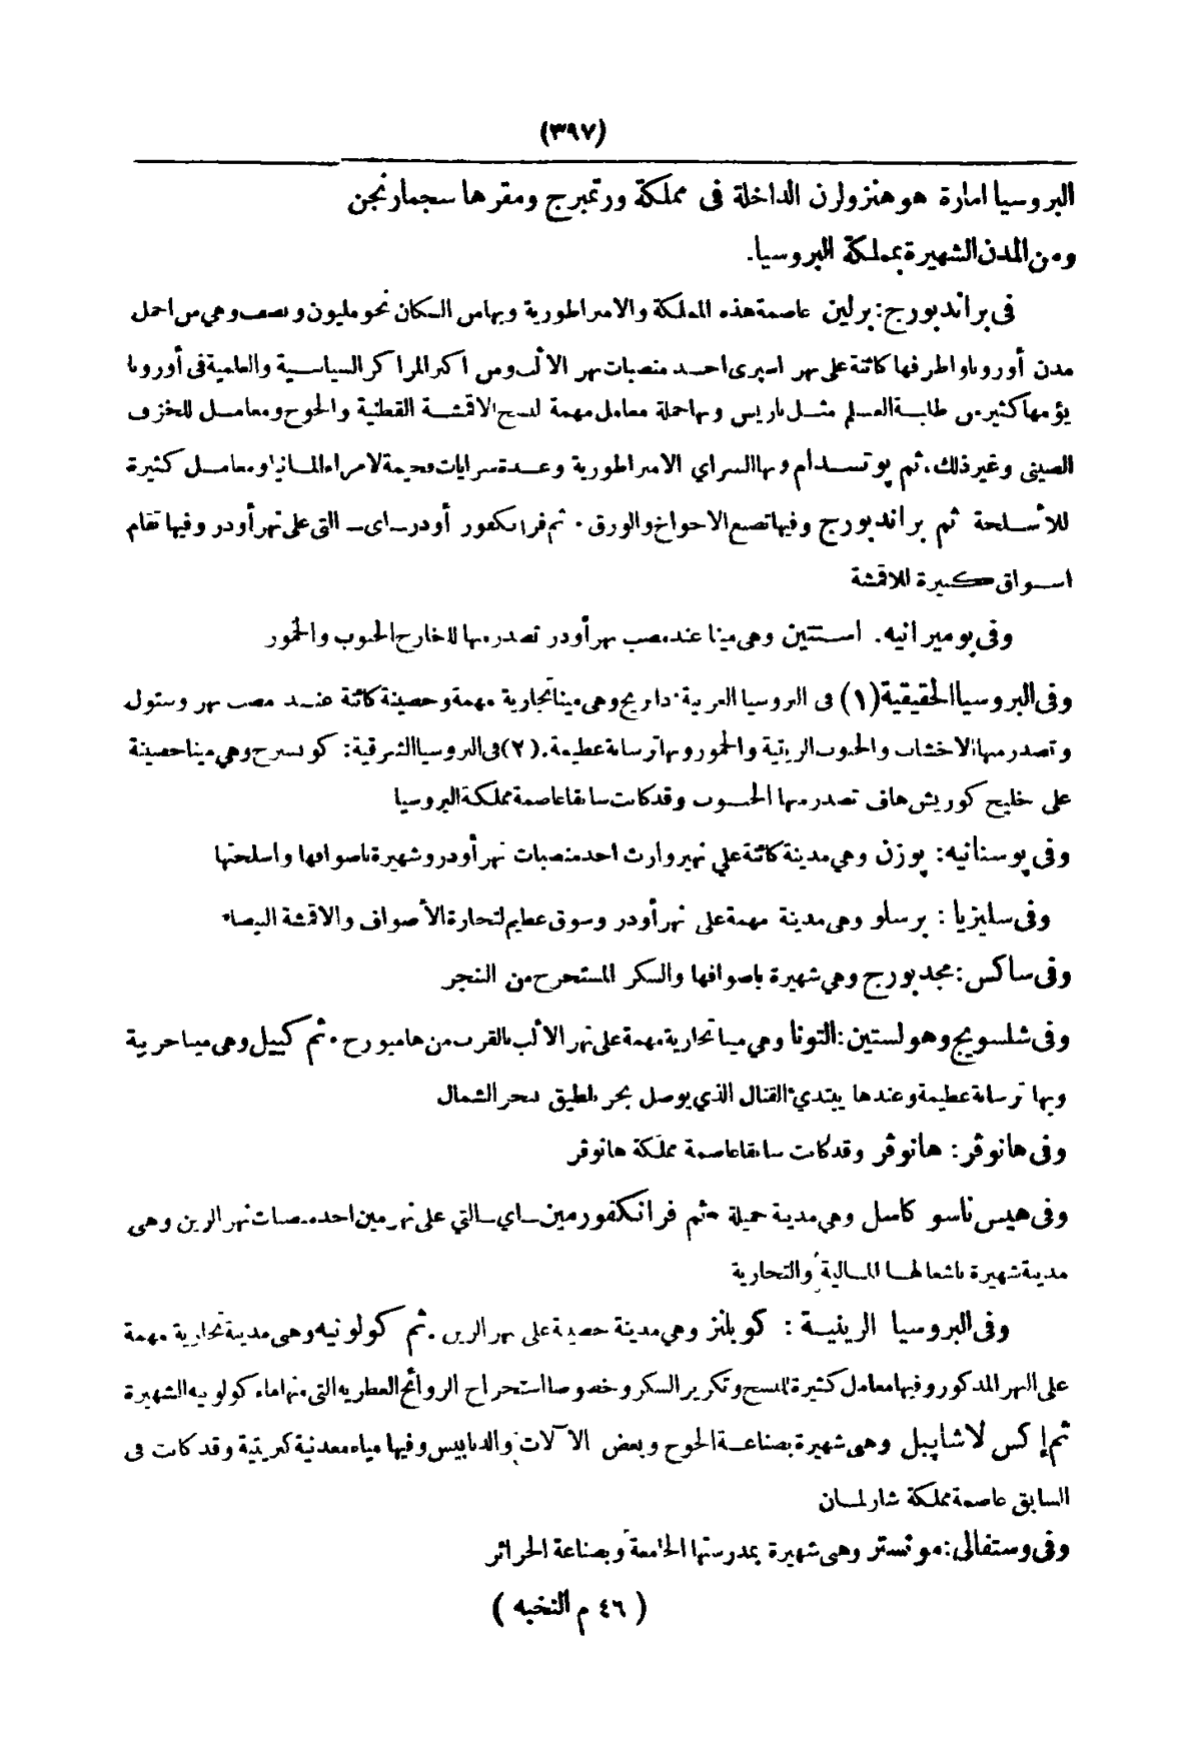 (٣٩٧)
البروسيا امارة هوهنزولرن الداخلة فى مملكة ورتمبرج ومقرها سجمارنجن
ومن المدن الشهيرة بمملكة البروسيا.
فى براندبورج: برلين عاصمة هذه المملكة والامبراطورية وبها من السكان نحو مليون ونصف وهى من اجمل
مدن أوروبا واطرفها كائنة على نهر اسپرى احد منصبات نهر الالب ومن اكبر المراكز السياسية والعلمية فى أوروبا
يؤمها كثير من طلبة العلم مثل باريس وبها جملة معامل مهمة لنسج الاقشة القطنية والجوخ ومعامل للخزف
الصينى وغير ذلك. ثم پوتسدام وبها السراي الامبراطورية وعدة سرايات فخيمة لامراء المانيا ومعامل كثيرة
للأسلحة ثم براندبورج وفيها تصنع الاجواخ والورق. ثم فرانكفور أودر-اى- التى على نهر أودر وفيها تقام
اسواق كبيرة للاقشة
وفى پوميرانيه. استتين وهى مينا عند مصب نهر أودر تصدر منها للخارج الحبوب والخمور
وفى البروسيا الحقيقية (١) فى البروسيا الغربية: دانزيج وهى مينا تجارية مهمة وحصينة كائنة عند مصب نهر وستول
وتصدر منها الاخشاب والحبوب الزيتية والخمور وبها ترسانة عظيمة. (٢) فى البروسيا الشرقية: كونسبرج وهى مينا حصينة
على خليج كوريش هاف تصدر منها الحبوب وقد كانت سابقا عاصمة مملكة البروسيا
وفى پوسنانيه: پوزن وهى مدينة كائنة علي نهر وارث احد منصبات نهر أودر وشهيرة باصوافها واسلحتها
وفى سليزيا : برسلو وهى مدينة مهمة على نهر أودر وسوق عظيم لتجارة الأصواف والاقشة البيضاء
وفى ساكس: مجدبورج وهي شهيرة باصوافها والسكر المستخرج من البنجر
وفى شلسويج وهولستين: التونا وهي مينا تجارية مهمة على نهر الألب بالقرب من هامبورج. ثم كييل وهى مينا حربية
وبها ترسانة عظيمة وعندها يبتدئ القنال الذي يوصل بحر بلطيق ببحر الشمال
وفى هانوڤر: هانوڤر وقد كانت سابقا عاصمة مملكة هانوڤر
وفى هيس ناسو كاسل وهي مدينة جميلة ثم فرانكفور مين-اي- التي على نهر مين احد منصبات نهر الرين وهى
مدينة شهيرة باشغالها المالية والتجارية
وفى البروسيا الرينية : كوبلنز وهي مدينة حصينة على نهر الرين. ثم كولونيه وهى مدينة تجارية مهمة
على النهر المذكور وفيها معامل كثيرة للنسج وتكرير السكر وخصوصا استخراج الروائح العطريه التى منها ماء كولونيه الشهيرة
ثم إكس لاشاپيل وهى شهيرة بصناعة الجوخ وبعض الآلات والدبابيس وفيها مياه معدنية كبريتية وقد كانت فى
السابق عاصمة مملكة شارلمان
وفى وستفالى: مونستر وهى شهيرة بمدرستها الجامعة وبصناعة الحرائر
( ٤٦ م النخبه )